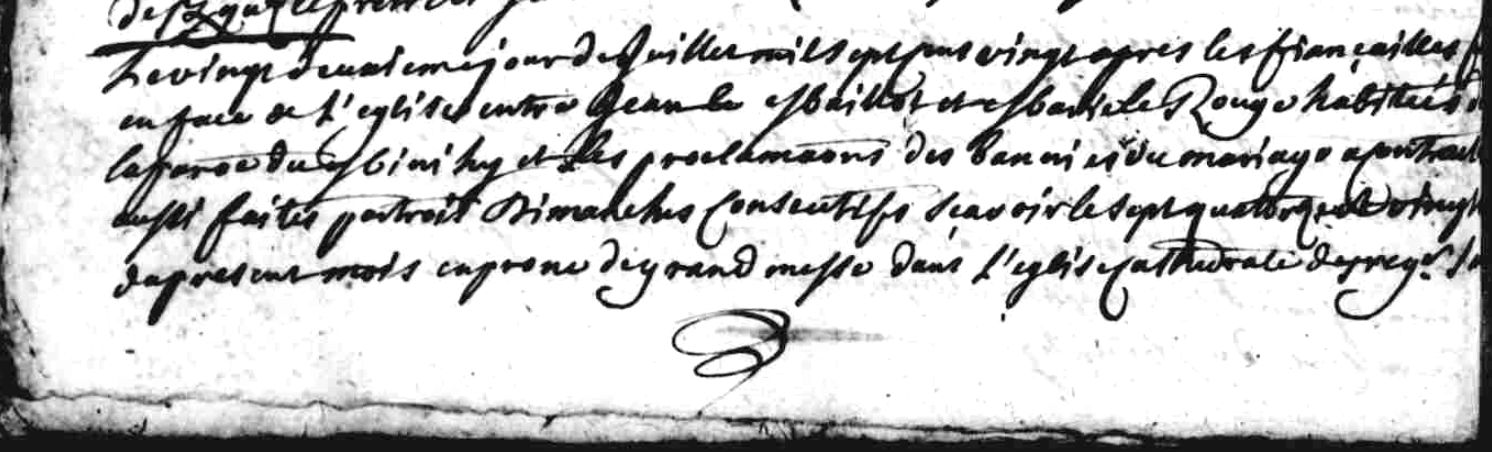 Le vingt deuxieme jour de Juillet mil sept cens vingt apres les fiançailles
en face de L'eglise entre Jean le Baillot et Marie le Rouge habitués
la paroe du Minihy et les proclamaons des bannies du mariage a contract
aussi faites par trois Dimanches Consecutifs Scavoir le sept quatorze et vingt
du present mois en prone de grand messe dans L'eglise Cathedrale de